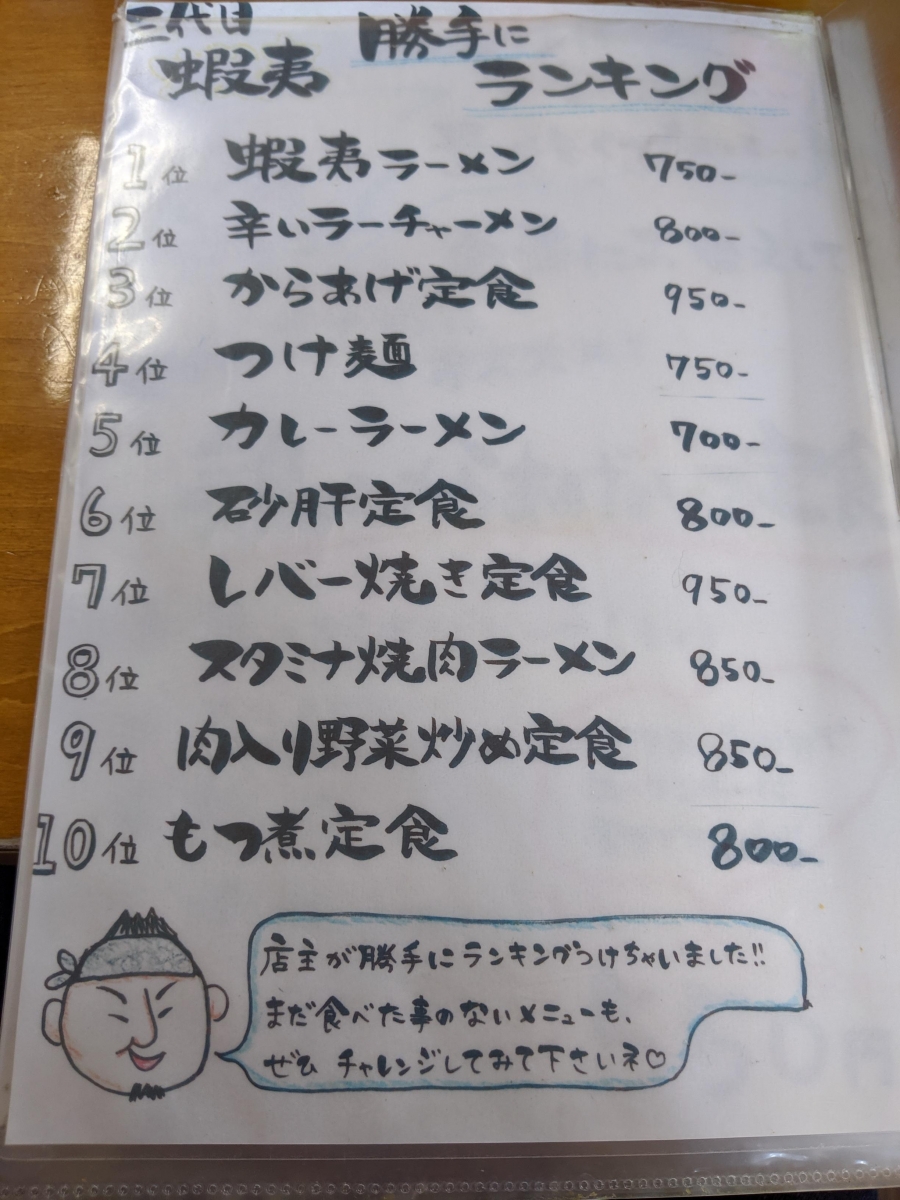 三代目
蝦夷 勝手に
ランキング
1位 蝦夷ラーメン 750-
2位 辛いラーチャーメン 800-
3位 からあげ定食 950-
4位 つけ麺 750-
5位 カレーラーメン 700-
6位 砂肝定食 800-
7位 レバー焼き定食 950-
8位 スタミナ焼肉ラーメン 850-
9位 肉入り野菜炒め定食 850-
10位 もつ煮定食 800-
店主が勝手にランキングつけちゃいました!!
まだ食べた事のないメニューも、
ぜひ チャレンジしてみて下さいネ♡